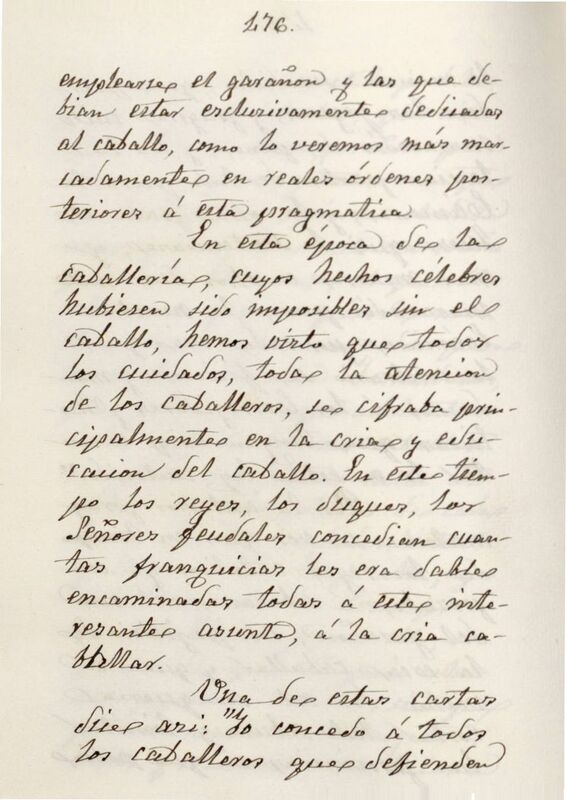 176.
emplearse el garañon y las que de-
bian estar esclusivamente dedicadas
al caballo, como lo veremos más mar-
cadamente en reales órdenes pos-
teriores á esta pragmatica
En esta época de la
caballería, cuyos hechos célebres
hubiesen sido imposibles sin el
caballo, hemos visto que todos
los cuidados, toda la atencion
de los caballeros, se cifraba prin-
cipalmente en la cria y edu-
cacion del caballo. En este tiem-
po los reyes, los duques, los
Señores feudales concedian cuan-
tas franquicias les era dable
encaminadas todas á este inte-
resante asunto, á la cria ca-
ballar.
Una de estas cartas
dice asi: "Yo concedo á todos
los caballeros que defienden